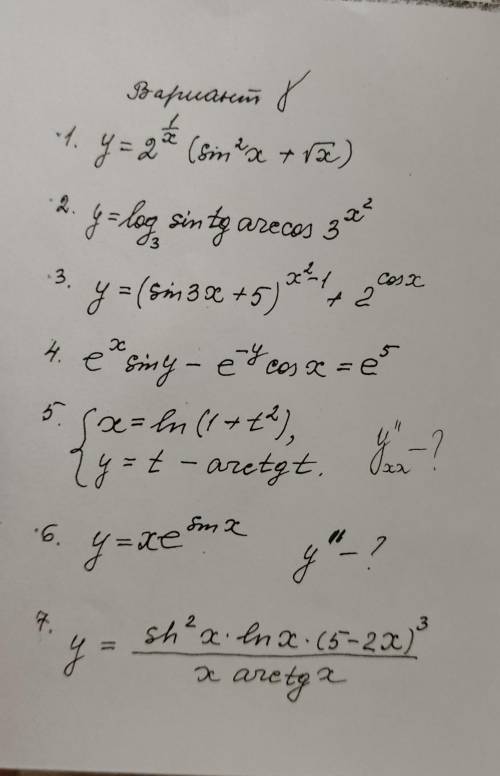 Вариант 8
1. y = 2^{1/x} (sin²x + √x)
2. y = log₃ sin tg arccos 3^{x²}
3. y = (sin3x + 5)^{x²-1} + 2^{cosx}
4. e^x sin y - e^{-y} cos x = e^5
5. { x = ln(1 + t²),
y = t - arctg t. y''ₓₓ - ?
6. y = xe^{sin x} y'' - ?
7. y = \frac{sh²x · ln x · (5-2x)³}{x arctg x}